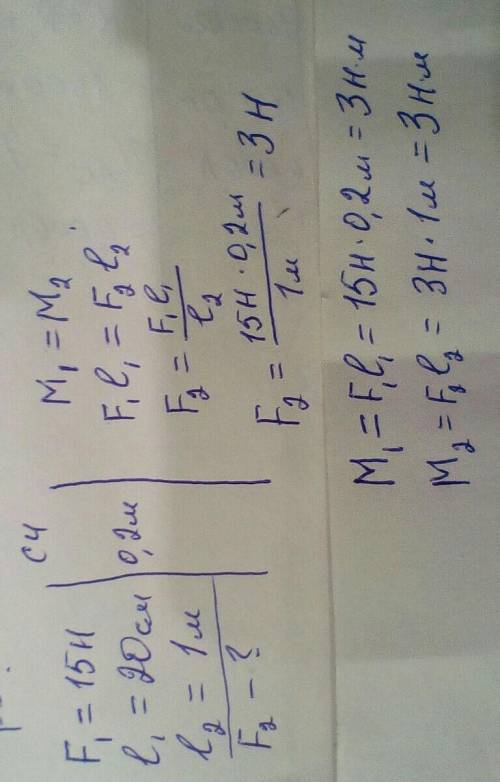 F₁ = 15Н
l₁ = 20см
l₂ = 1м
F₂ - ?
СИ
0,2м
M₁ = M₂
F₁l₁ = F₂l₂.
F₂ = F₁l₁ / l₂
F₂ = 15Н · 0,2м / 1м = 3Н
M₁ = F₁l₁ = 15Н · 0,2м = 3Н·м
M₂ = F₂l₂ = 3Н · 1м = 3Нм